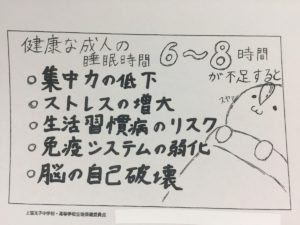 健康な成人の
睡眠時間 6〜8時間
が不足すると
○集中力の低下
○ストレスの増大
○生活習慣病のリスク
○免疫システムの弱化
○脳の自己破壊
スヤァ